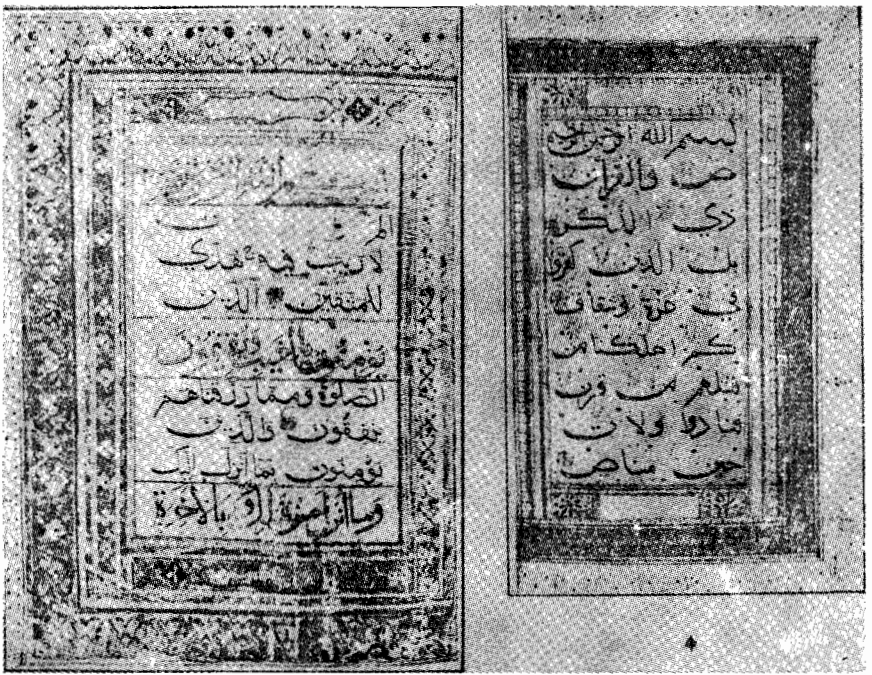 بسم الله الرحمن الرحيم
ص والقرآن
ذي الذكر
بل الذين كفروا
في عزة وشقاق
كم اهلكنا من
قبلهم من قرن
فنادوا ولات
حين مناص
الم
لا ريب فيه هدي
للمتقين الذين
يؤمنون بالغيب ويقيمون
الصلوة ومما رزقناهم
ينفقون والذين
يؤمنون بما انزل اليك
وما انزل من بالأخرة
4